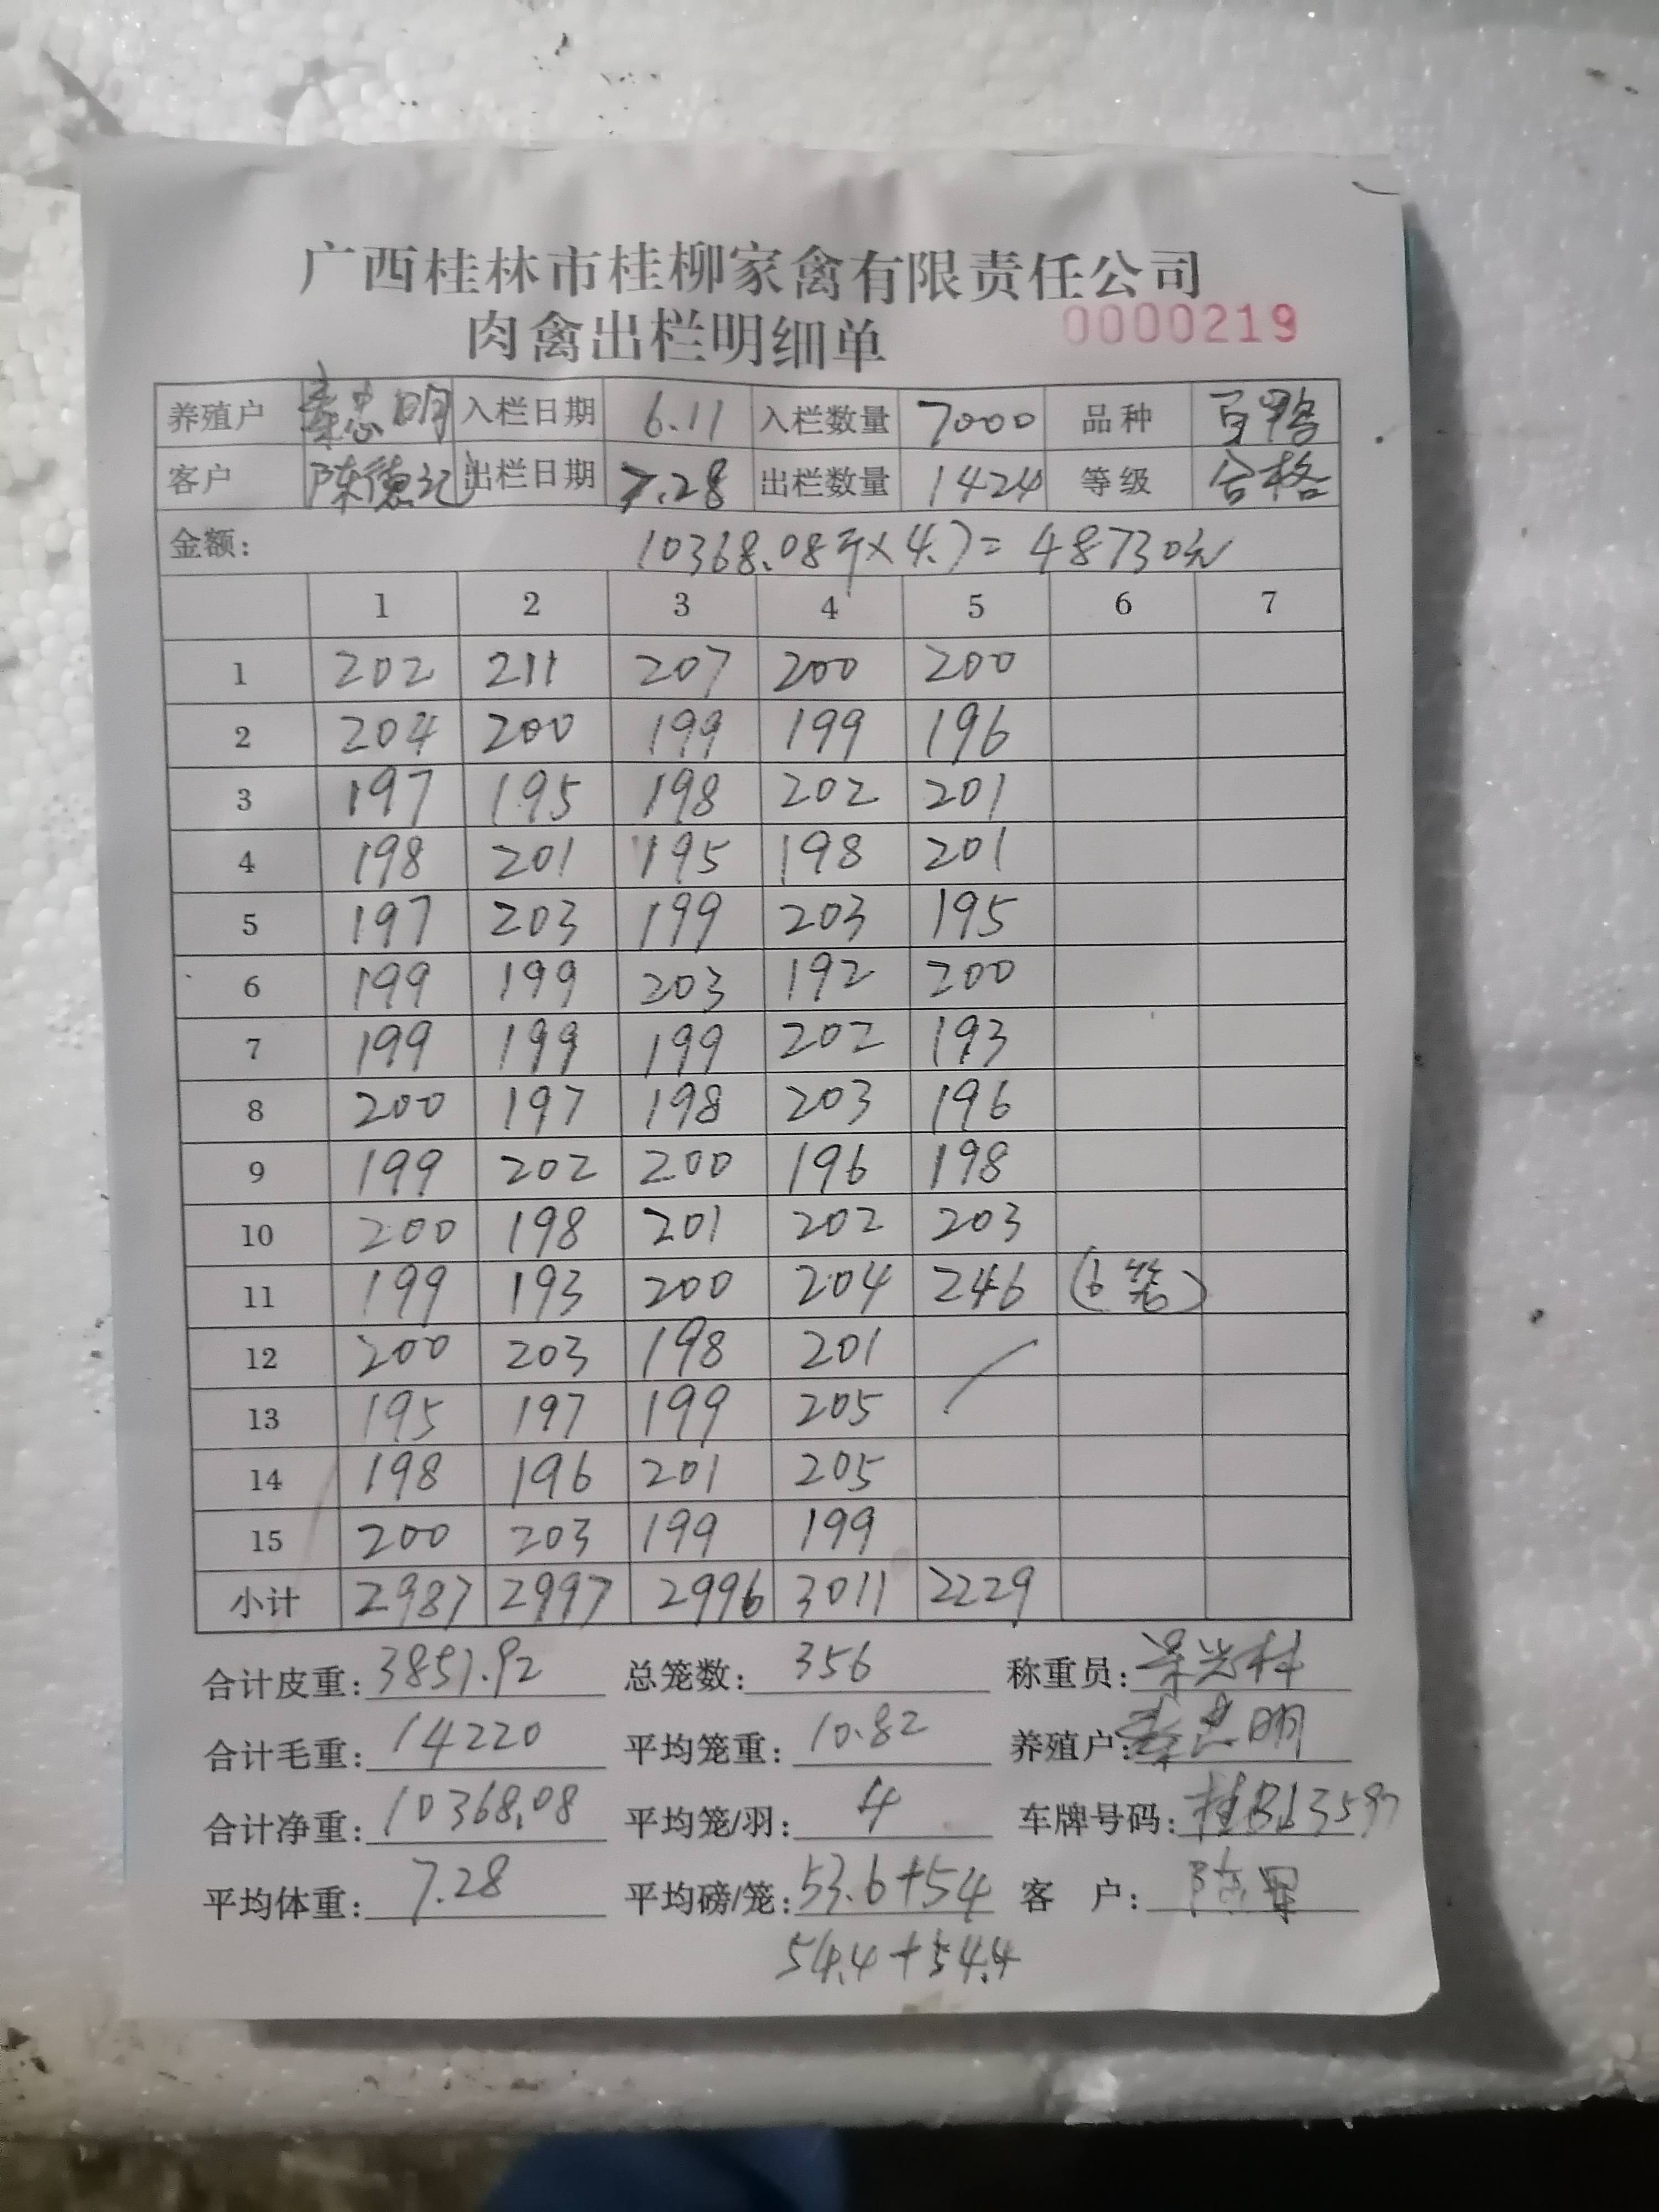 广西桂林市桂柳家禽有限责任公司
肉禽出栏明细单 0000219
养殖户 秦忠明 入栏日期 6.11 入栏数量 7000 品种 白鸭
客户 陈德记 出栏日期 7.28 出栏数量 1424 等级 合格
金额: 10368.08斤×4.7=48730元
1 2 3 4 5 6 7
1 202 211 207 200 200
2 204 200 199 199 196
3 197 195 198 202 201
4 198 201 195 198 201
5 197 203 199 203 195
6 199 199 203 192 200
7 199 199 199 202 193
8 200 197 198 203 196
9 199 202 200 196 198
10 200 198 201 202 203
11 199 193 200 204 246 (6笼)
12 200 203 198 201
13 195 197 199 205
14 198 196 201 205
15 200 203 199 199
小计 2987 2997 2996 3011 2229
合计皮重: 3851.92 总笼数: 356 称重员:
合计毛重: 14220 平均笼重: 10.82 养殖户: 秦忠明
合计净重: 10368.08 平均笼/羽: 4 车牌号码:
平均体重: 7.28 平均磅/笼: 53.6+54 客户:
54.4+54.4